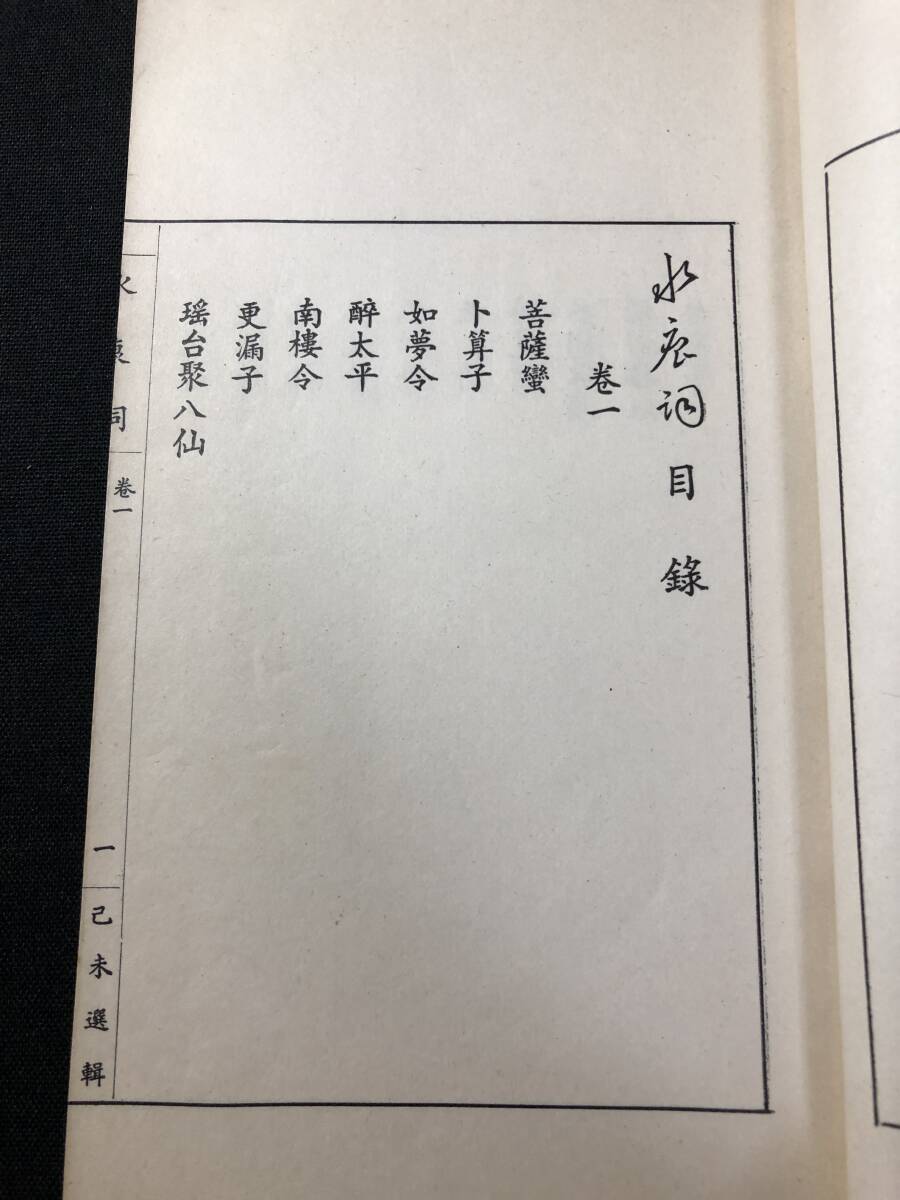 水痕詞目錄
卷一
菩薩蠻
卜算子
如夢令
醉太平
南樓令
更漏子
瑶台聚八仙
卷一
一
己未選輯